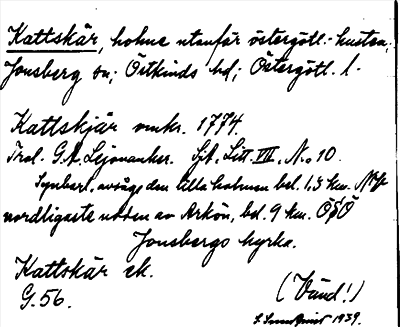 Kattskär, holme utanför östergötl. kusten;
Jonsberg sn; Östkinds hd; Östergötl. l.
Kattskjär omkr. 1774.
Trol. G.A. Lejonanker. Sjk. Litt. VIII, No 10.
Synbarl. avsåge den lilla holmen bel. 1,5 km. NV
nordligaste udden av Arkön, bel. 9 km. OSO
Jonsbergs kyrka.
Kattskär ek.
G. 56.
(Vänd!)
S. Sundqvist 1939.